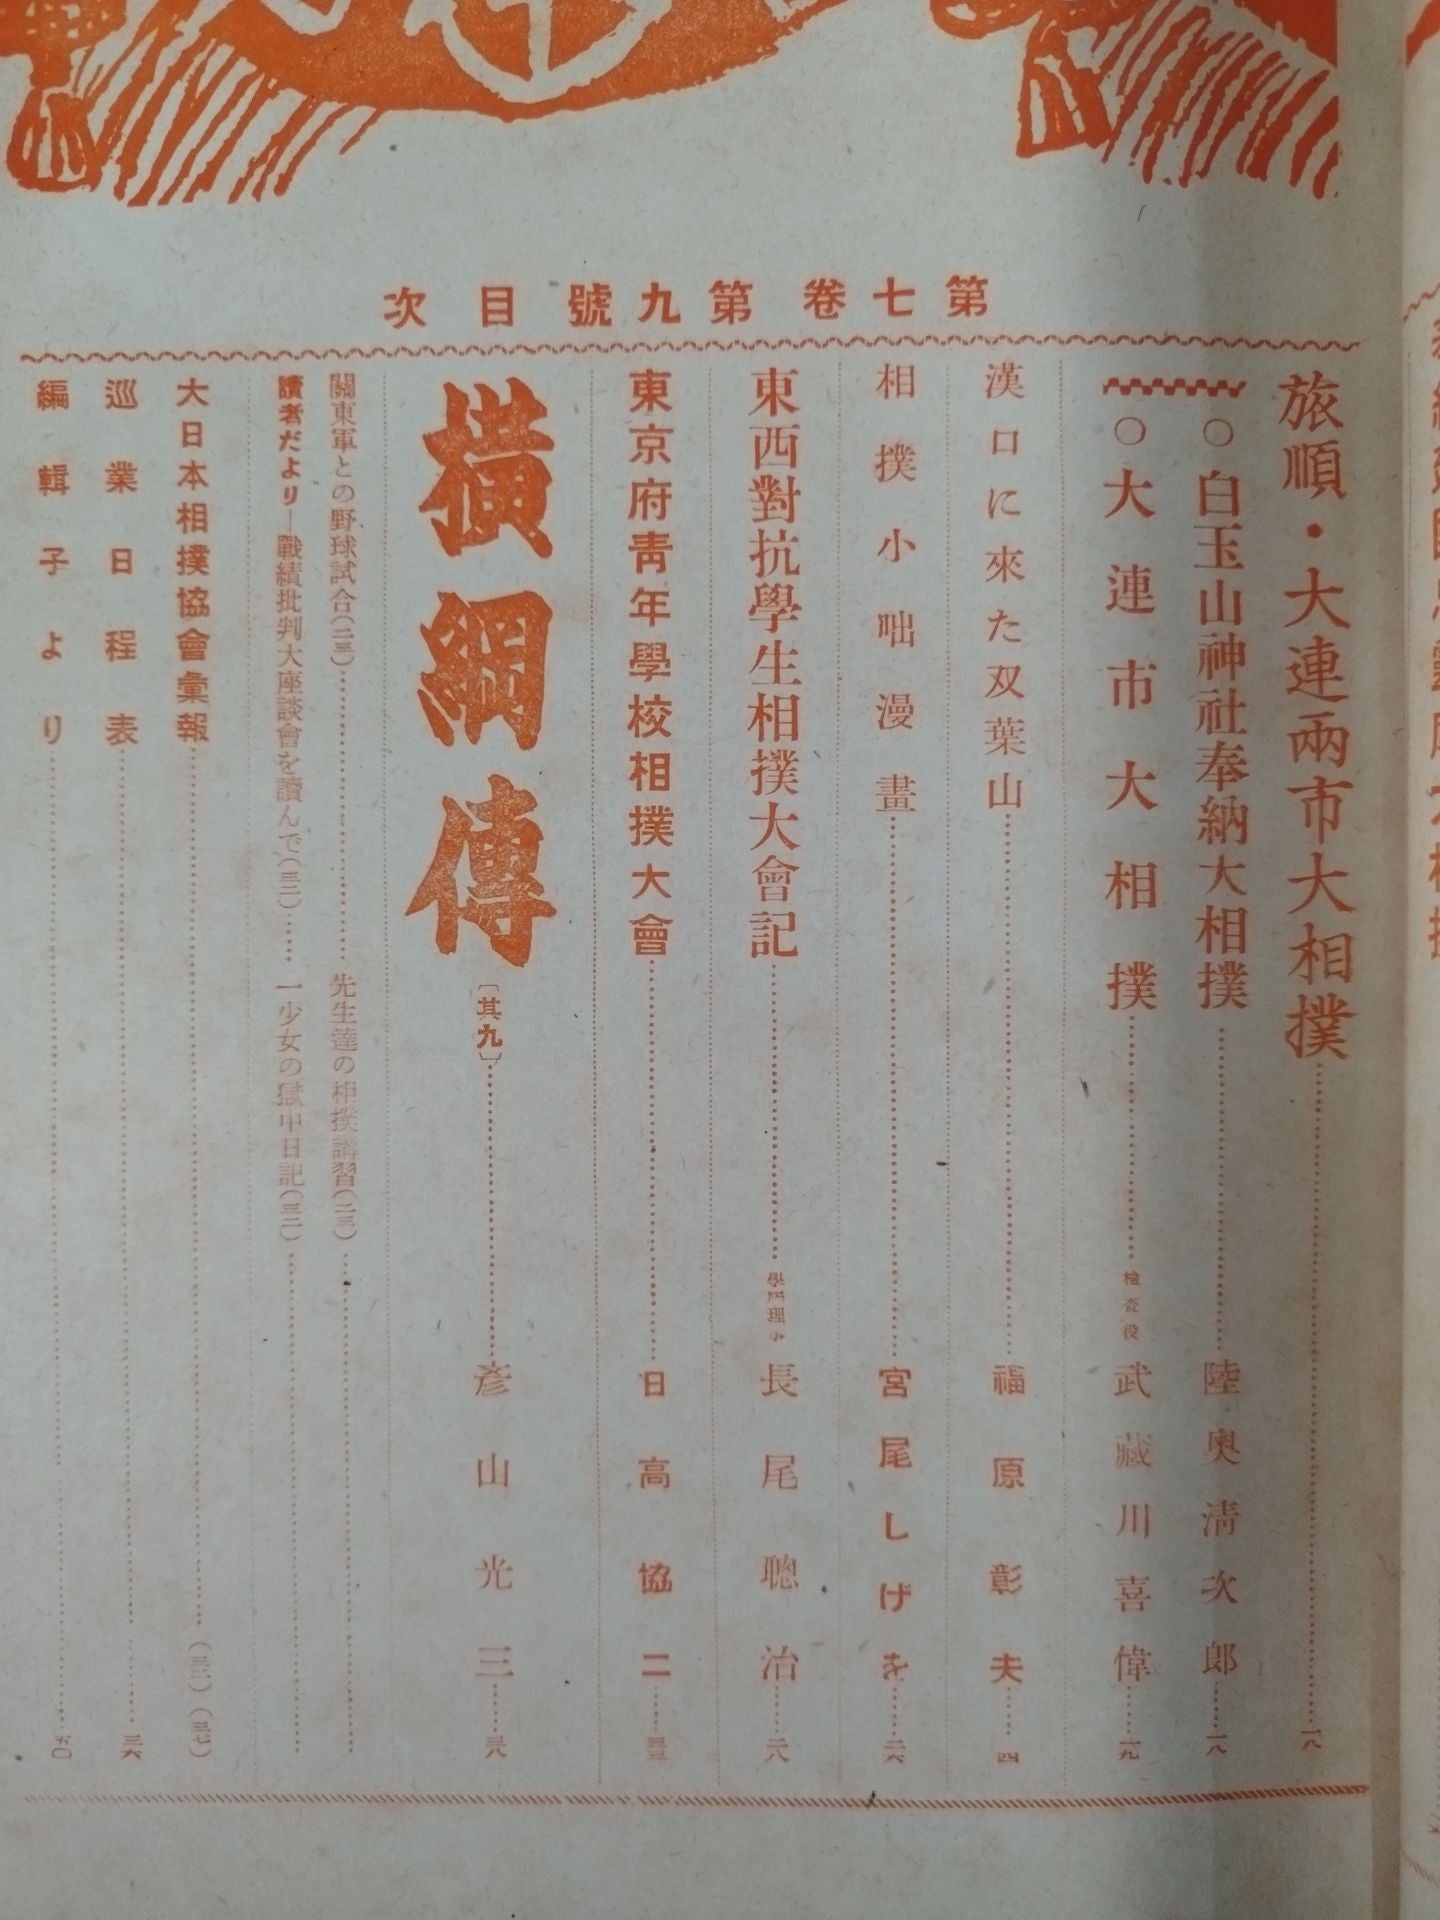 第七卷第九號目次
旅順・大連兩市大相撲……一八
○白玉山神社奉納大相撲……陸奧淸次郎……一八
○大連市大相撲……檢査役 武藏川喜偉……一九
漢口に來た双葉山……福原彰夫……四
相撲小咄漫畫……宮尾しげを……二六
東西對抗學生相撲大會記……長尾聰治……二八
東京府靑年學校相撲大會……日高協二……三三
橫綱傳〔其九〕……彥山光三……三八
關東軍との野球試合(二三)……先生達の相撲講習(二三)……
讀者だより―戰績批判大座談會を讀んで(三二)……一少女の獄中日記(三二)……
大日本相撲協會彙報……(三二)(三七)
巡業日程表……三六
編輯子より……五〇